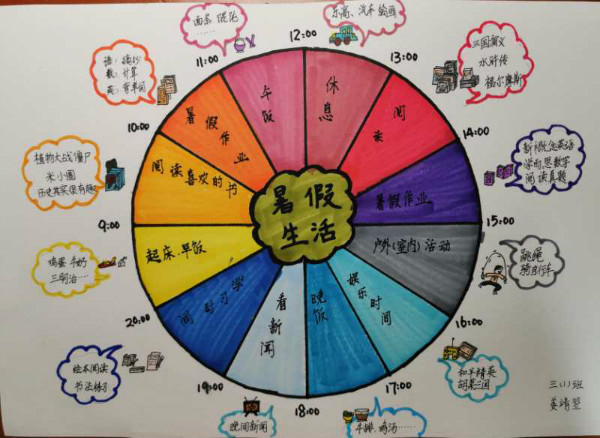 面条 馄饨
乐高、汽车 绘画
语：摘抄
数：计算
英：背单词
三国演义
水浒传
福尔摩斯
12:00
11:00
13:00
午饭
休息
暑假作业
阅读
10:00
14:00
植物大战僵尸
米小圈
历史其实很有趣
阅读喜欢的书
暑假作业
新概念英语
学而思数学
阅读真题
暑假
生活
9:00
15:00
鸡蛋 牛奶
三明治……
起床、早饭
户外(室内)活动
跳绳
骑自行车
学习时间
看新闻
晚饭
娱乐时间
20:00
16:00
绘本阅读
书法练习
和平精英
19:00
17:00
18:00
晚间新闻
牛排、鸡汤……
三(1)班